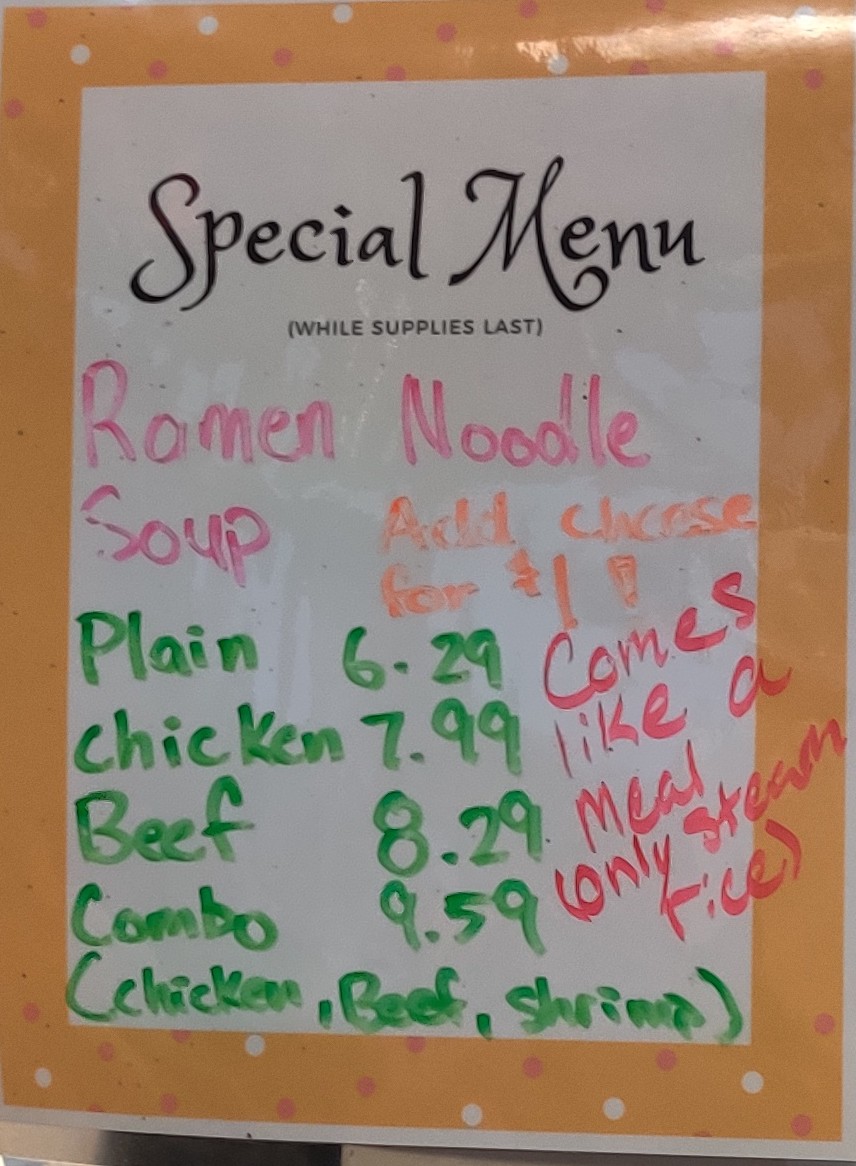 Special Menu
(WHILE SUPPLIES LAST)
Ramen Noodle
Soup
Add cheese
for $1!
Plain 6.29
chicken 7.99
Beef 8.29
Combo 9.59
(chicken, Beef, shrimp)
Comes
like a
meal
(only steam
rice)